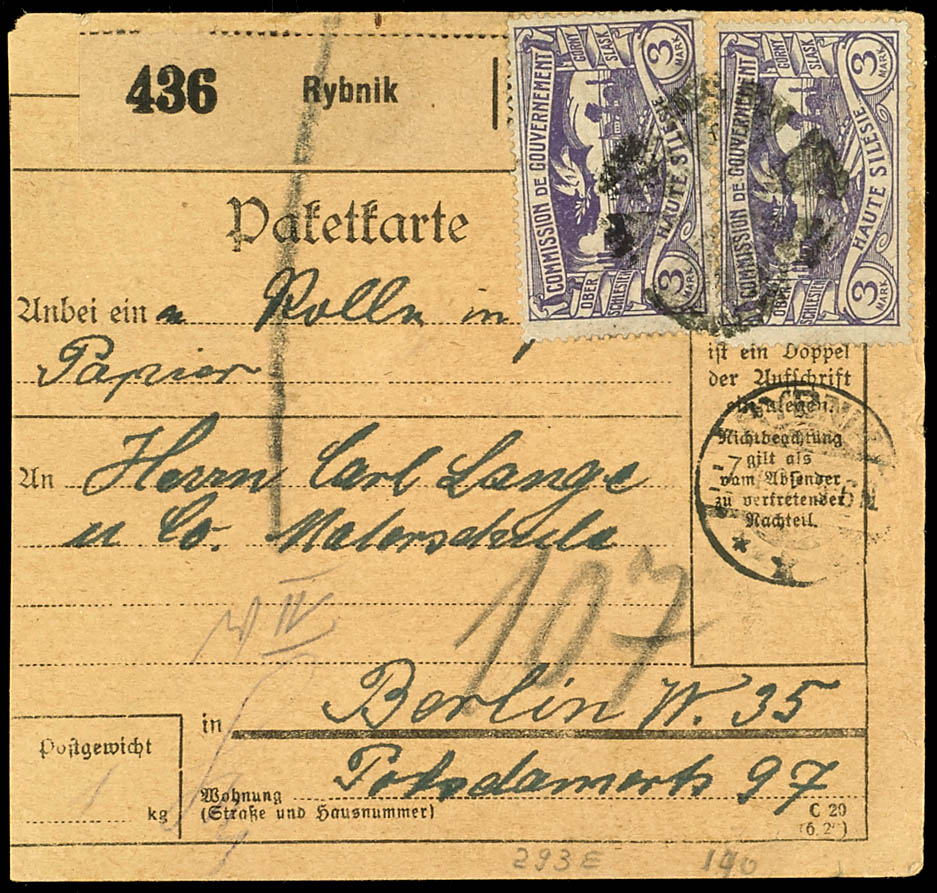 436 Rybnik
3 MARK
GÓRNY ŚLĄSK
COMMISSION DE GOUVERNEMENT
HAUTE SILESIE
OBER SCHLESIEN
3 MARK
3 MARK
GÓRNY ŚLĄSK
COMMISSION DE GOUVERNEMENT
HAUTE SILESIE
OBER SCHLESIEN
3 MARK
Paketkarte
Anbei ein e Rolle in
Papier
ist ein Doppel
der Aufschrift
einzulegen.
Nichtbeachtung
gilt als
vom Absender
zu vertretender
Nachteil.
An Herrn Carl Lange
u Co. Malerschule
107
W IV
in Berlin W. 35
Potsdamerstr 97
Postgewicht
kg
Wohnung
(Straße und Hausnummer)
C 20
293E 190